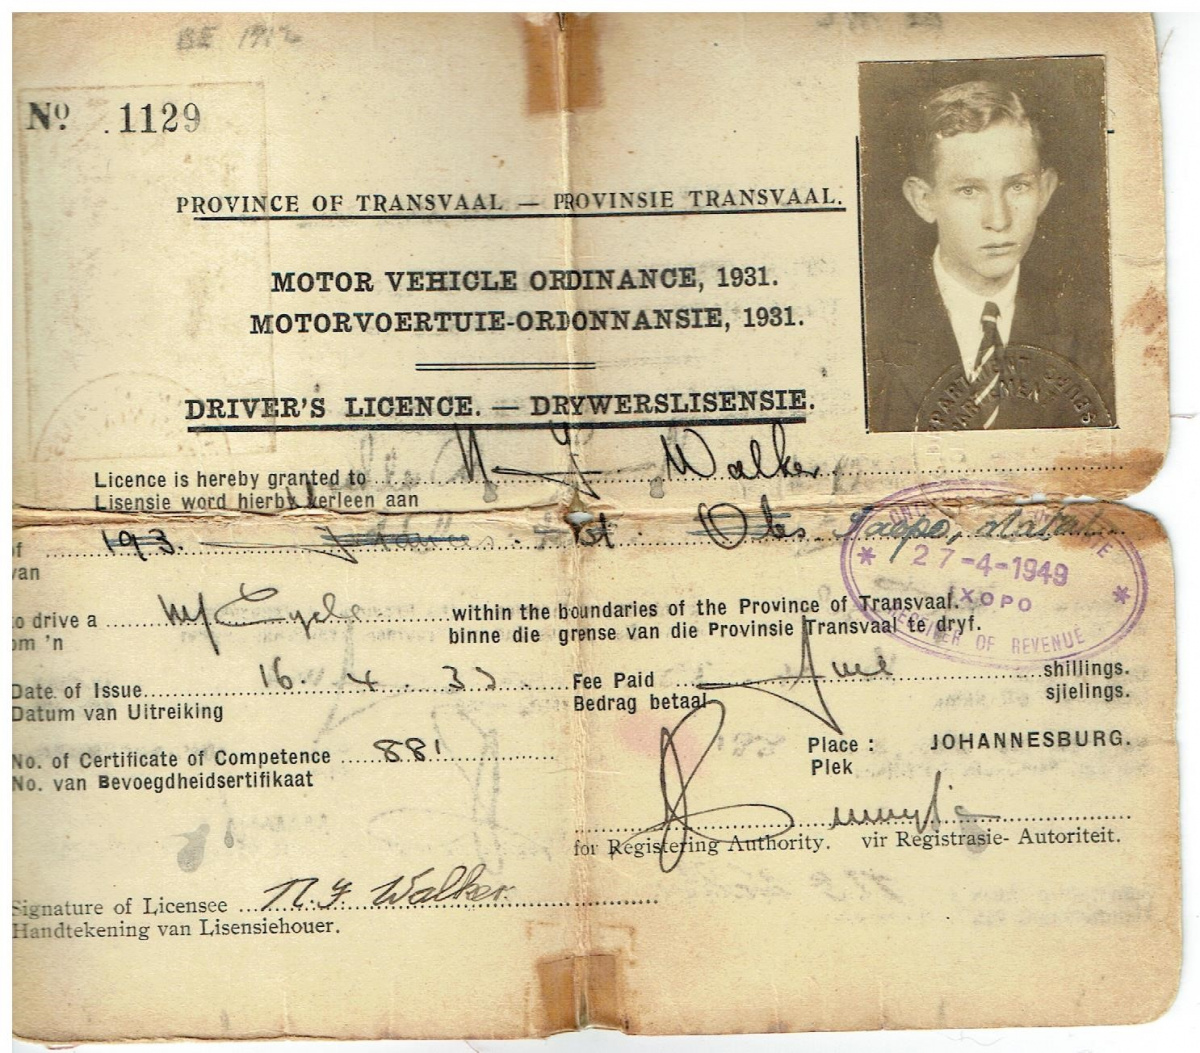 BE 1912
Nº 1129
PROVINCE OF TRANSVAAL — PROVINSIE TRANSVAAL.
MOTOR VEHICLE ORDINANCE, 1931.
MOTORVOERTUIE-ORDONNANSIE, 1931.
DRIVER'S LICENCE. — DRYWERSLISENSIE.
Licence is hereby granted to N F Walker
Lisensie word hierby verleen aan
of 193. St.
van
27-4-1949
IXOPO
RECEIVER OF REVENUE
to drive a M/Cycle within the boundaries of the Province of Transvaal.
om 'n binne die grense van die Provinsie Transvaal te dryf.
Date of Issue 16. 4. 37 Fee Paid five shillings.
Datum van Uitreiking Bedrag betaal sjielings.
No. of Certificate of Competence 881 Place : JOHANNESBURG.
No. van Bevoegdheidsertifikaat Plek
for Registering Authority. vir Registrasie- Autoriteit.
Signature of Licensee N. F. Walker.
Handtekening van Lisensiehouer.